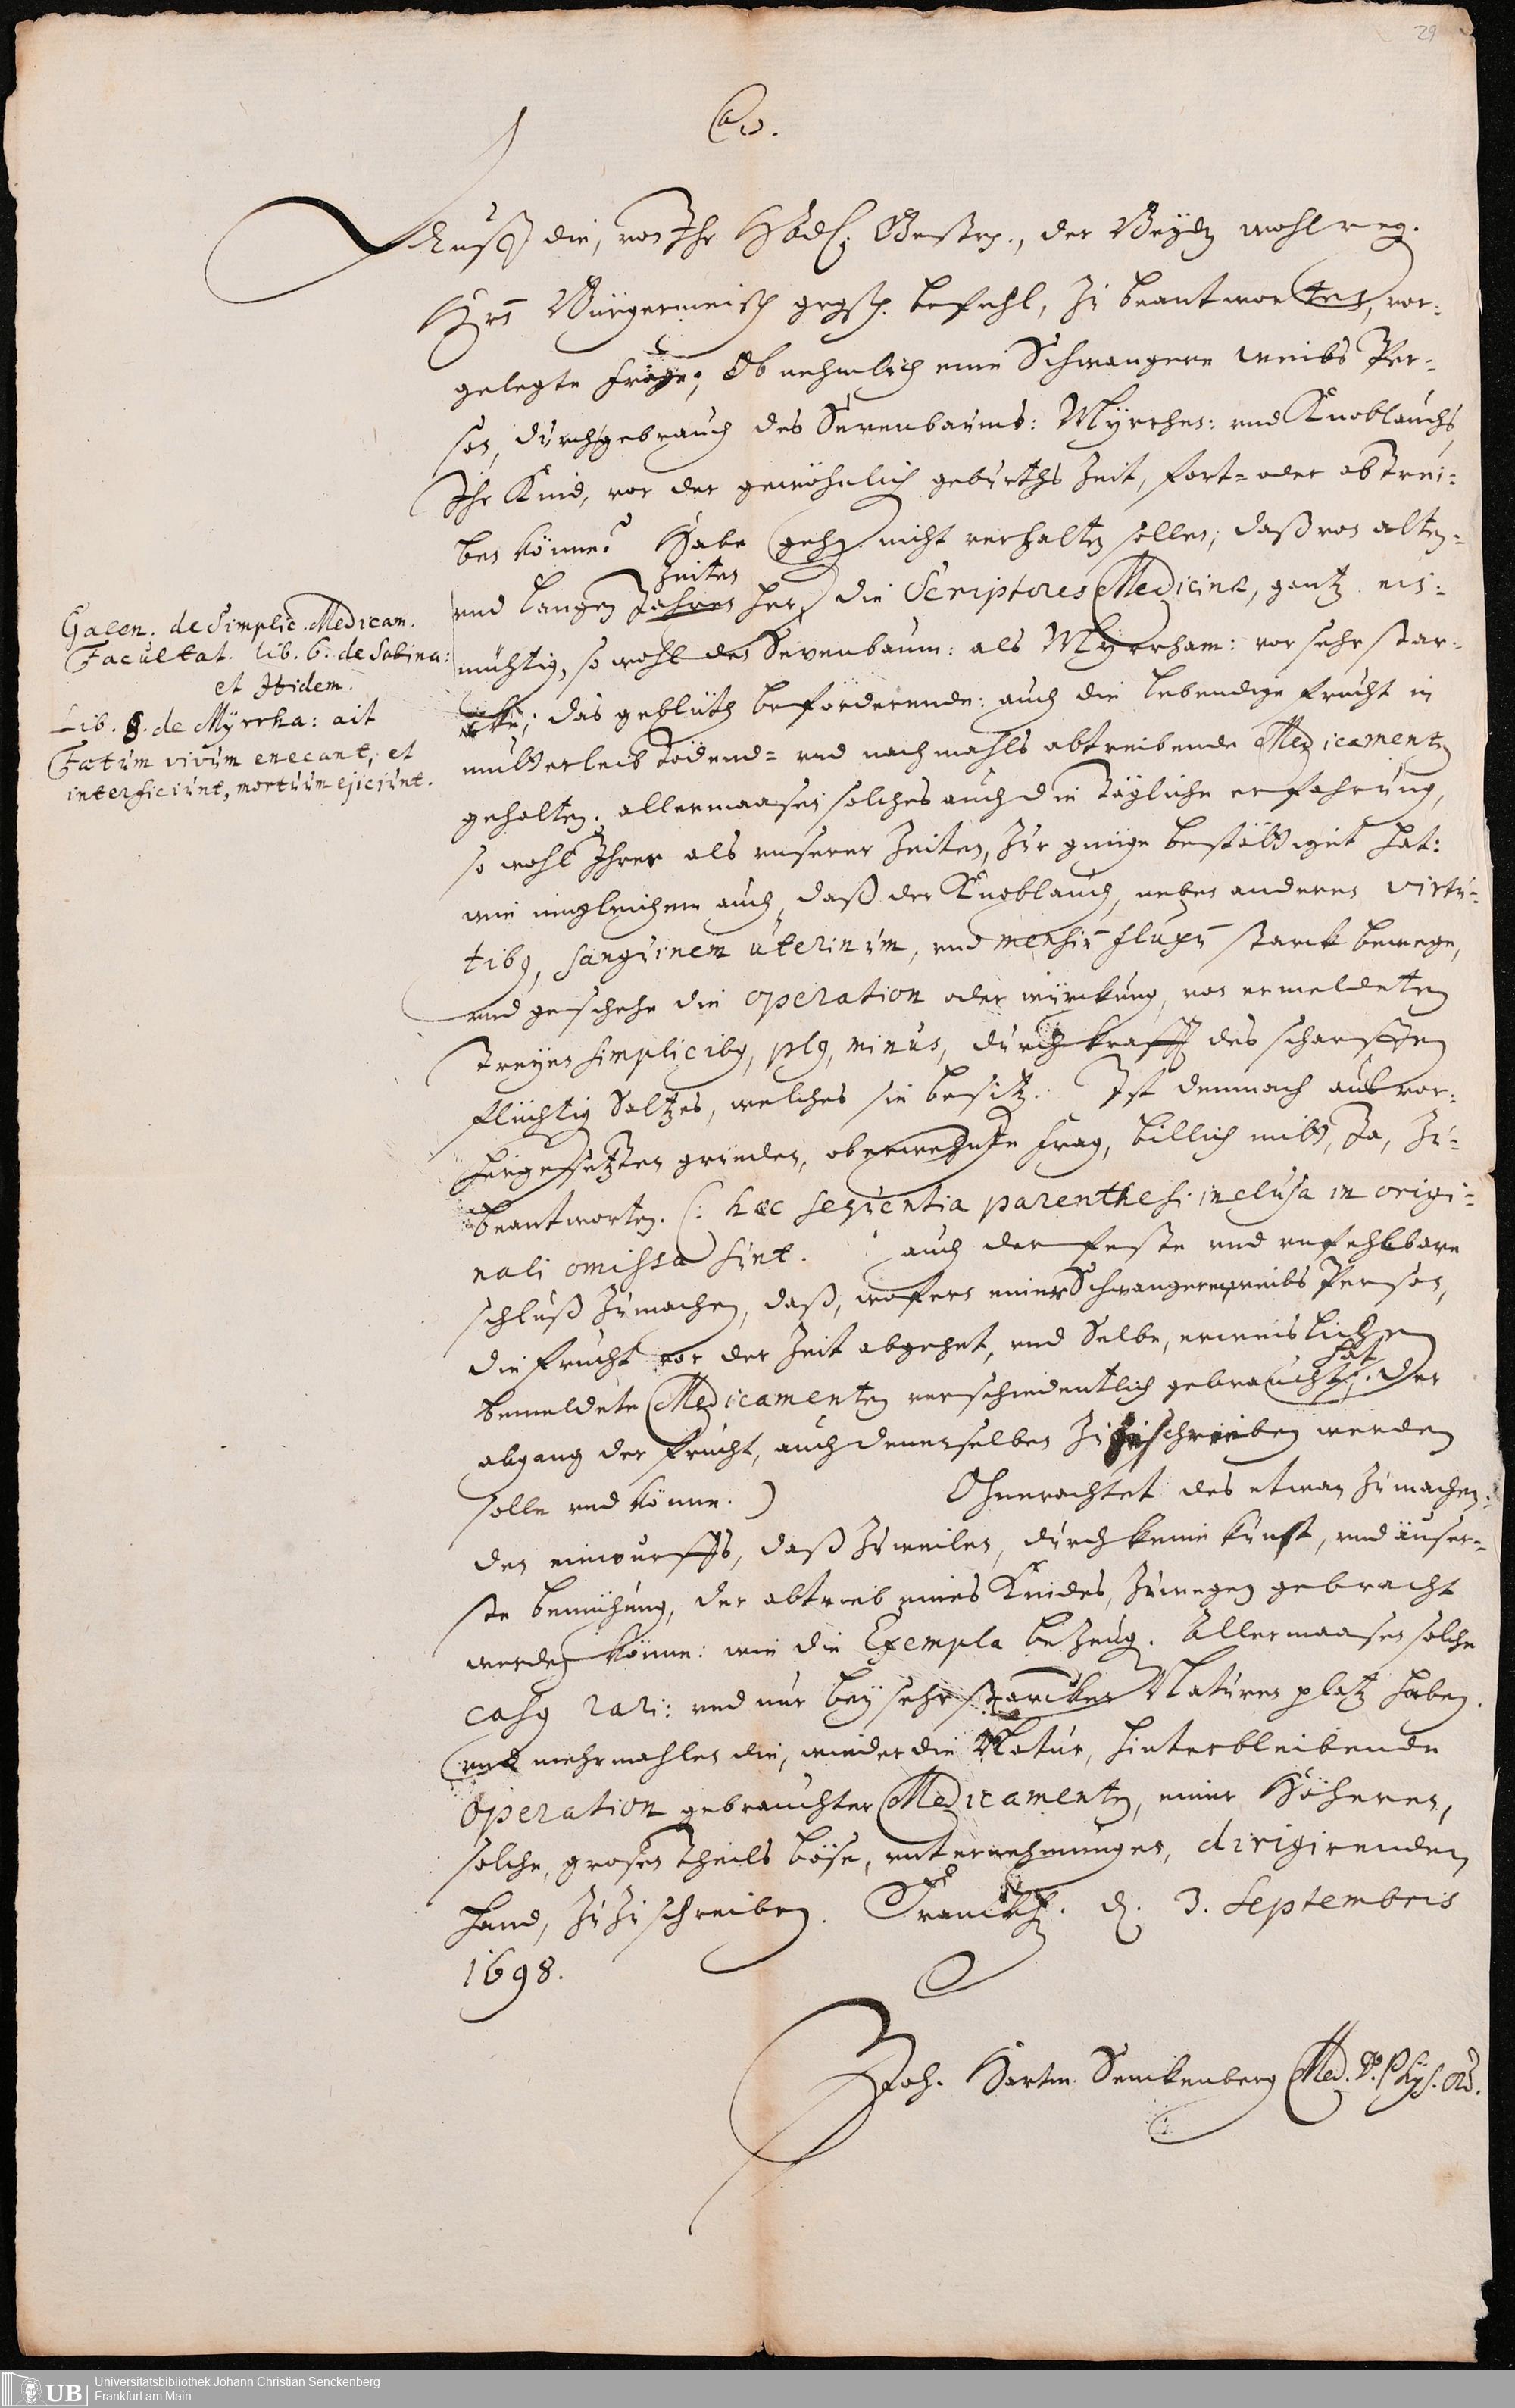 29
Auff die, von Ihr HödH. Gestrg., der Beyden wohlreg.
Hrn Bürgermeistr grgstl. befehl, zu beantworten, vor-
gelegte frage; Ob nehmlich eine Schwangere weibs Per-
son, durchgebrauch des Sevenbaums: Myrrhen: und Knoblauchs
Ihr Kind, vor der gewöhnlich geburths Zeit, fort- oder abtrei-
ben könne? Habe gehs. nicht verhalten sollen, daß von alten-
Zeiten
und langen Jahren her, die Scriptores Medicinæ, gantz ein-
müthig, so wohl den Sevenbaum: als Myrrham: vor sehr star-
cke; das geblüth befördernde: auch die lebendige frucht in
mutterleib tödend- und nachmahls abtreibende Medicamenten
gehalten. allermaasen solches auch die tägliche erfahrung,
so wohl Ihrer als unserer Zeiten, zur gnüge bestättiget hat:
wie imgleichem auch, daß der Knoblauch, neben anderen virtu-
tibg, sanguinem uterinum, und mensiũ fluxũ starck bewege,
und geschehe die operation oder würckung, von ermeldeten
dreyen simplicibg, plg, minus, durch krafft des scharffen
flüchtig Saltzes, welches sie besitz. Ist demnach aus vor-
hergesetzten gründen, oberwehnte frag, billich mitt, Ja, zu-
beantworten. (: hæc sequentia parenthesi inclusa in origi-
nali omissa sunt. auch der feste und unfehlbare
schluß zumachen, daß, wofern einer Schwangeren weibs Person,
die frucht vor der Zeit abgehet, und Selbe, erweislichen
hat
bemeldete Medicamenten verschiedentlich gebraucht, der
abgang der frucht, auch denenselben zu zuschreiben werden
solle und könne.) Ohnerachtet des etwan zumachen-
den einwurffs, daß zuweilen, durch keine kunst, und äuser-
ste bemühung, der abtrieb eines Kindes, zuwegen gebracht
werden könne: wie die Exempla bezeug. Allermaasen solche
casg rari: und nur bey sehr starcken Naturen platz haben.
und mehrmahlen die, wieder die Natur, hinterbleibende
operation gebrauchter Medicamenten, einer Höheren,
solche, grosen theils böse, unternehmungen, dirigirenden
Hand, zu zuschreiben. Franckf. d. 3. Septembris
1698.
Joh. Hartm. Senckenberg Med. D. Phys. Ord.
Galen. de Simplic. Medicam.
Facultat. lib. 6. de Sabina:
et Ibidem.
Lib. 8. de Myrrha: ait
Fœtum vivum enecant, et
interficiunt, mortuum ejiciunt.
UB
Universitätsbibliothek Johann Christian Senckenberg
Frankfurt am Main